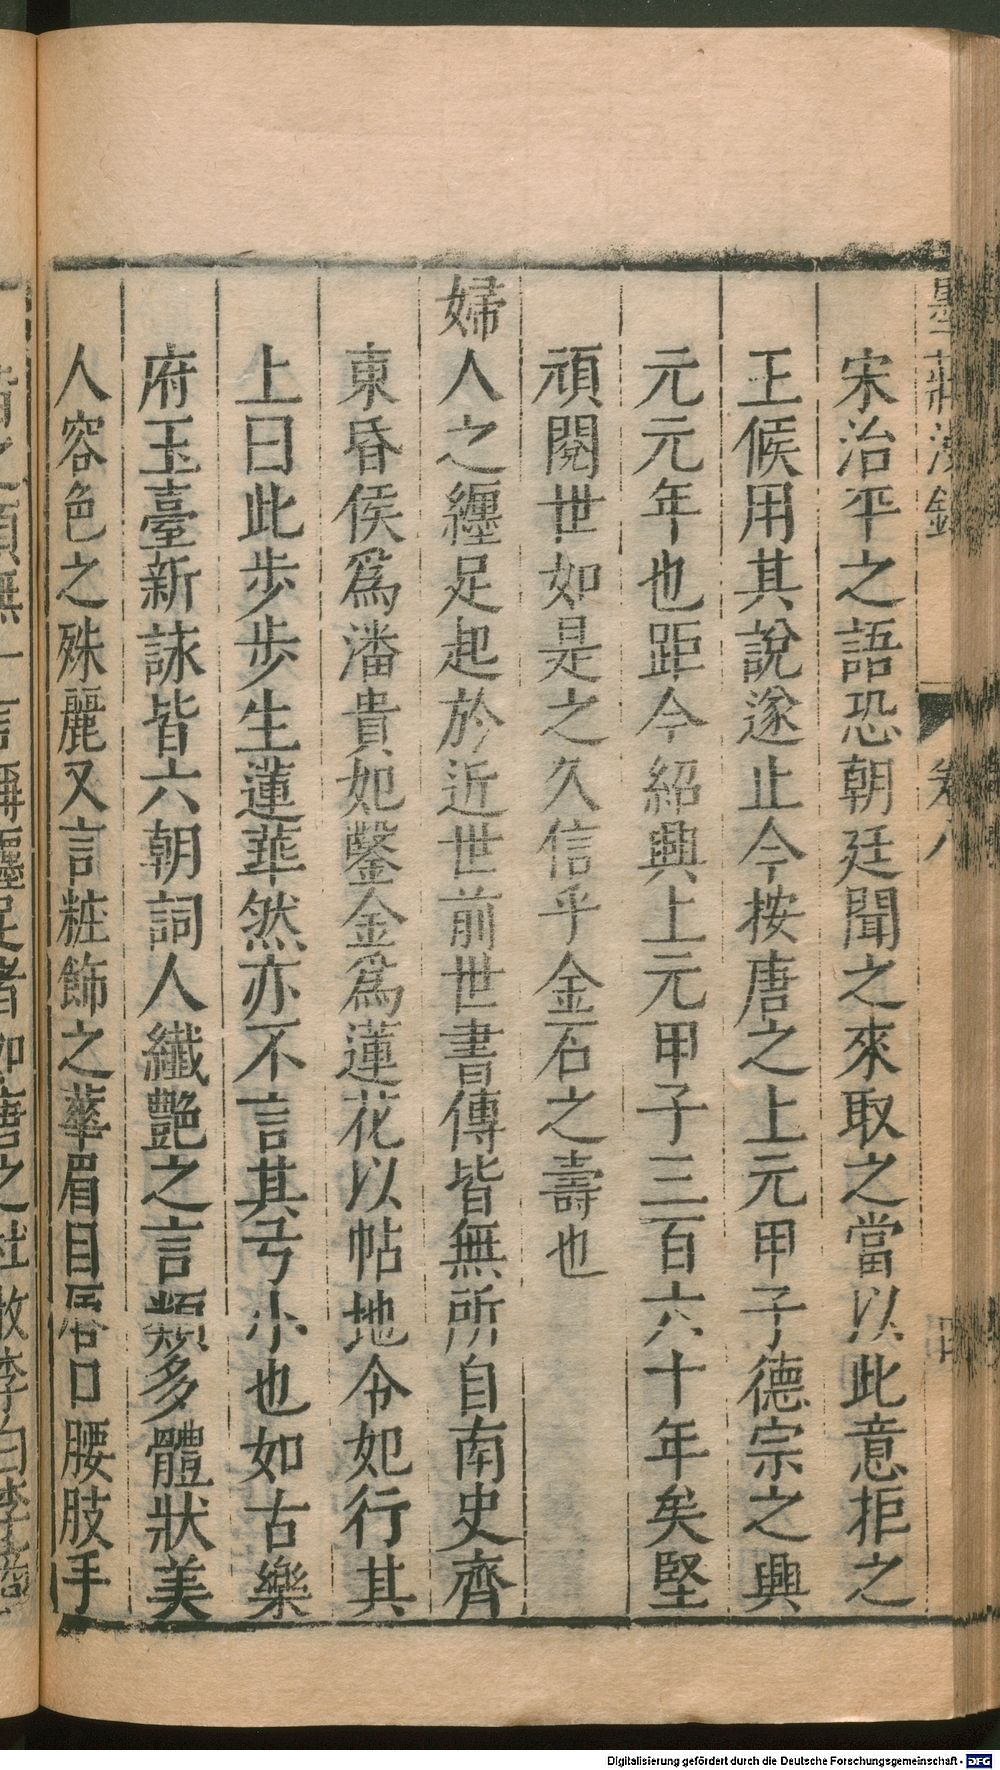 宋治平之語恐朝廷聞之來取之當以此意拒之
王候用其說遂止今按唐之上元甲子德宗之興
元元年也距今紹興上元甲子三百六十年矣堅
頑閱世如是之久信乎金石之壽也
婦人之纏足起於近世前世書傳皆無所自南史齊
東昏侯爲潘貴妃鑿金爲蓮花以帖地令妃行其
上曰此步步生蓮華然亦不言其弓小也如古樂
府玉臺新詠皆六朝詞人纖艷之言類多體狀美
人容色之殊麗又言粧飾之華眉目唇口腰肢手
Digitalisierung gefördert durch die Deutsche Forschungsgemeinschaft - DFG